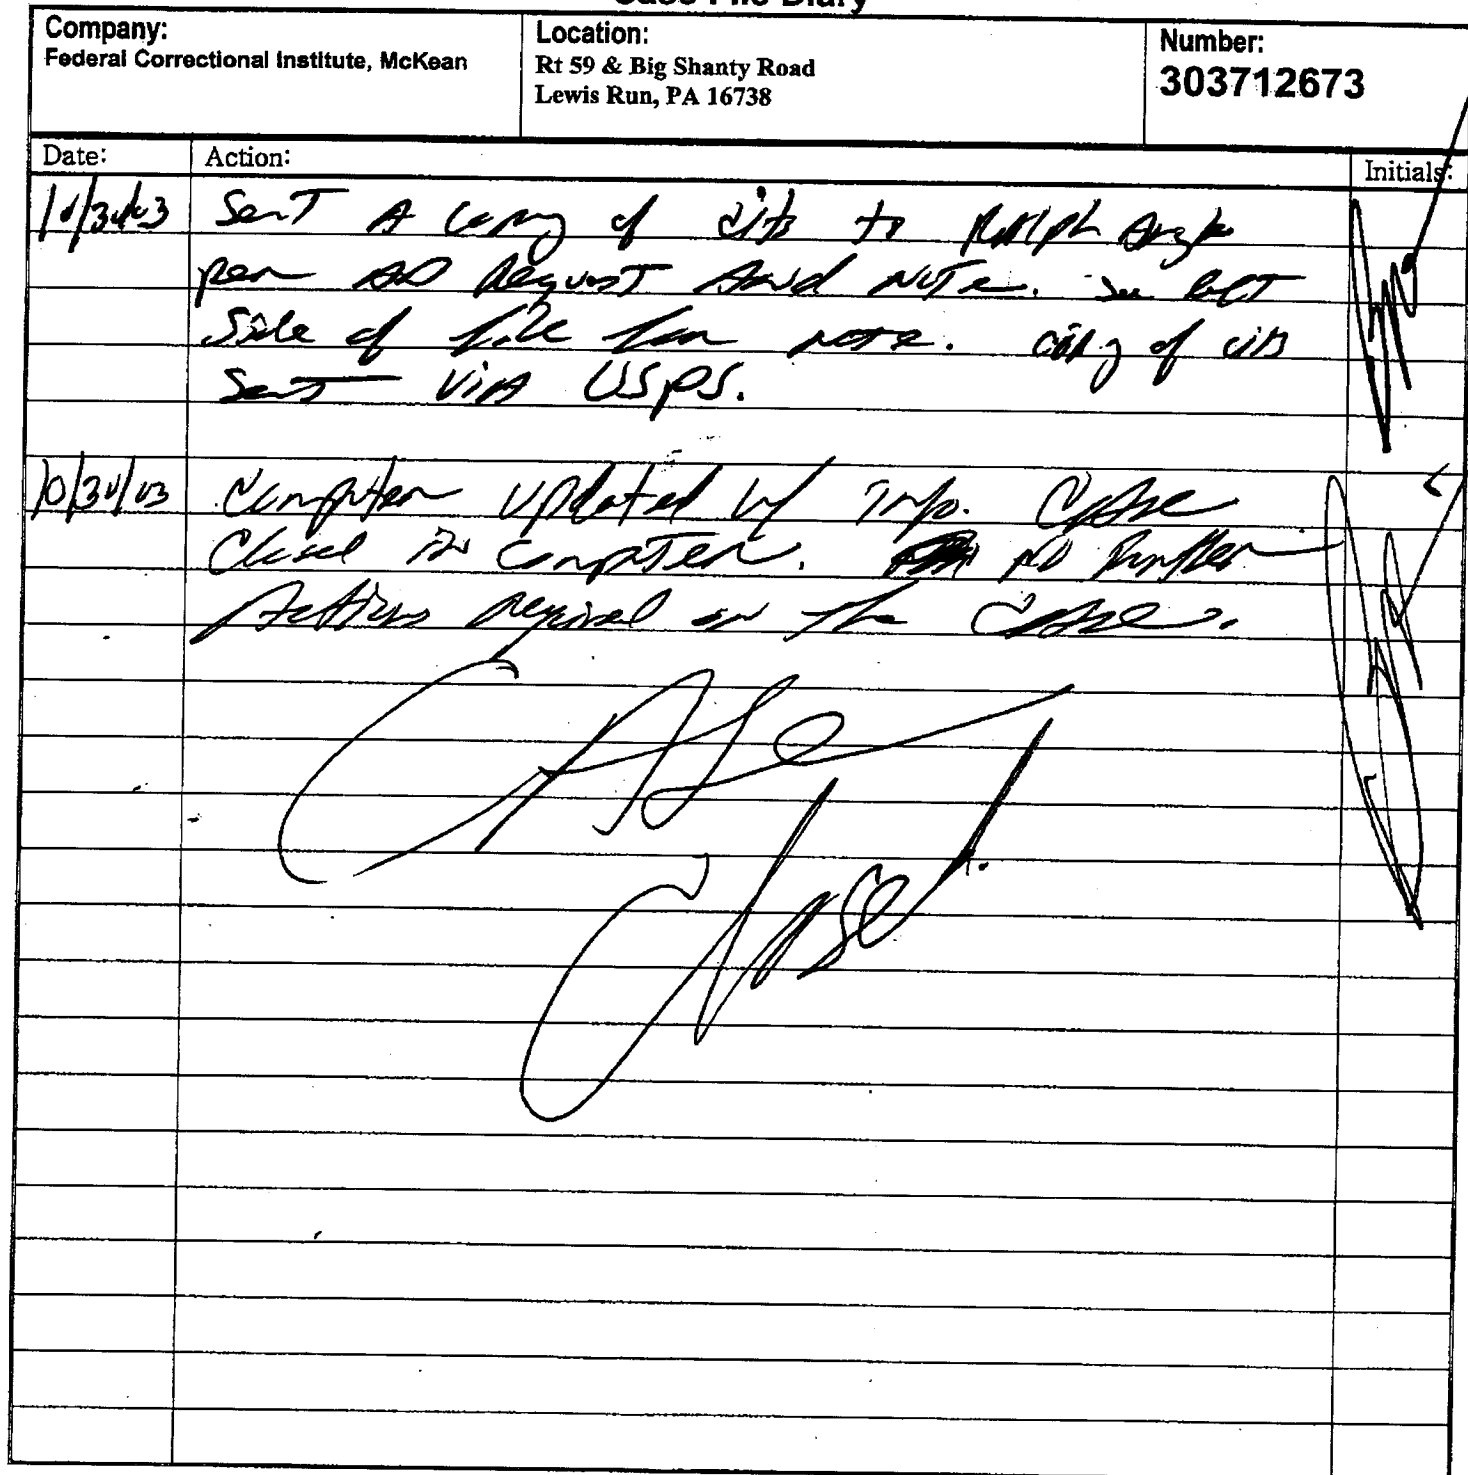 Case File Diary
Company:
Federal Correctional Institute, McKean
Location:
Rt 59 & Big Shanty Road
Lewis Run, PA 16738
Number:
303712673
Date:
Action:
Initials:
10/30/03
Sent A copy of cits to Ralph
per AD Request And Note. See left
Side of file for note. copy of cits
Sent Via USPS.
10/30/03
Computer Updated w/ Info. Case
Closed in computer. No further
Actions required on the Case.
Case
Closed.